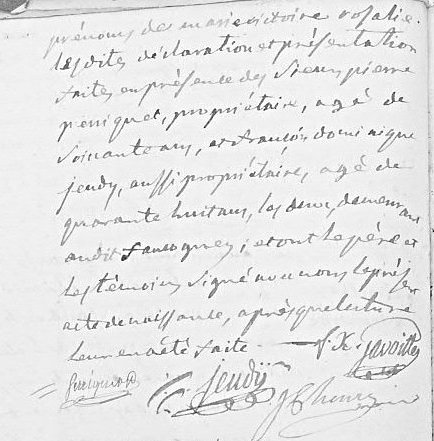 prénoms de marie victoire rosalie.
Lesdites déclaration et présentation
faites en présence des Sieurs pierre
propriétaire, agé de
Soixante ans, et françois dominique
jeudy, aussi propriétaire, agé de
quarante huit ans, les deux demeurant
audit faucogney; et ont le père et
les témoins signé avec nous le présent
acte de naissance, après que lecture
leur en a été faite. f. X.
Jeudÿ